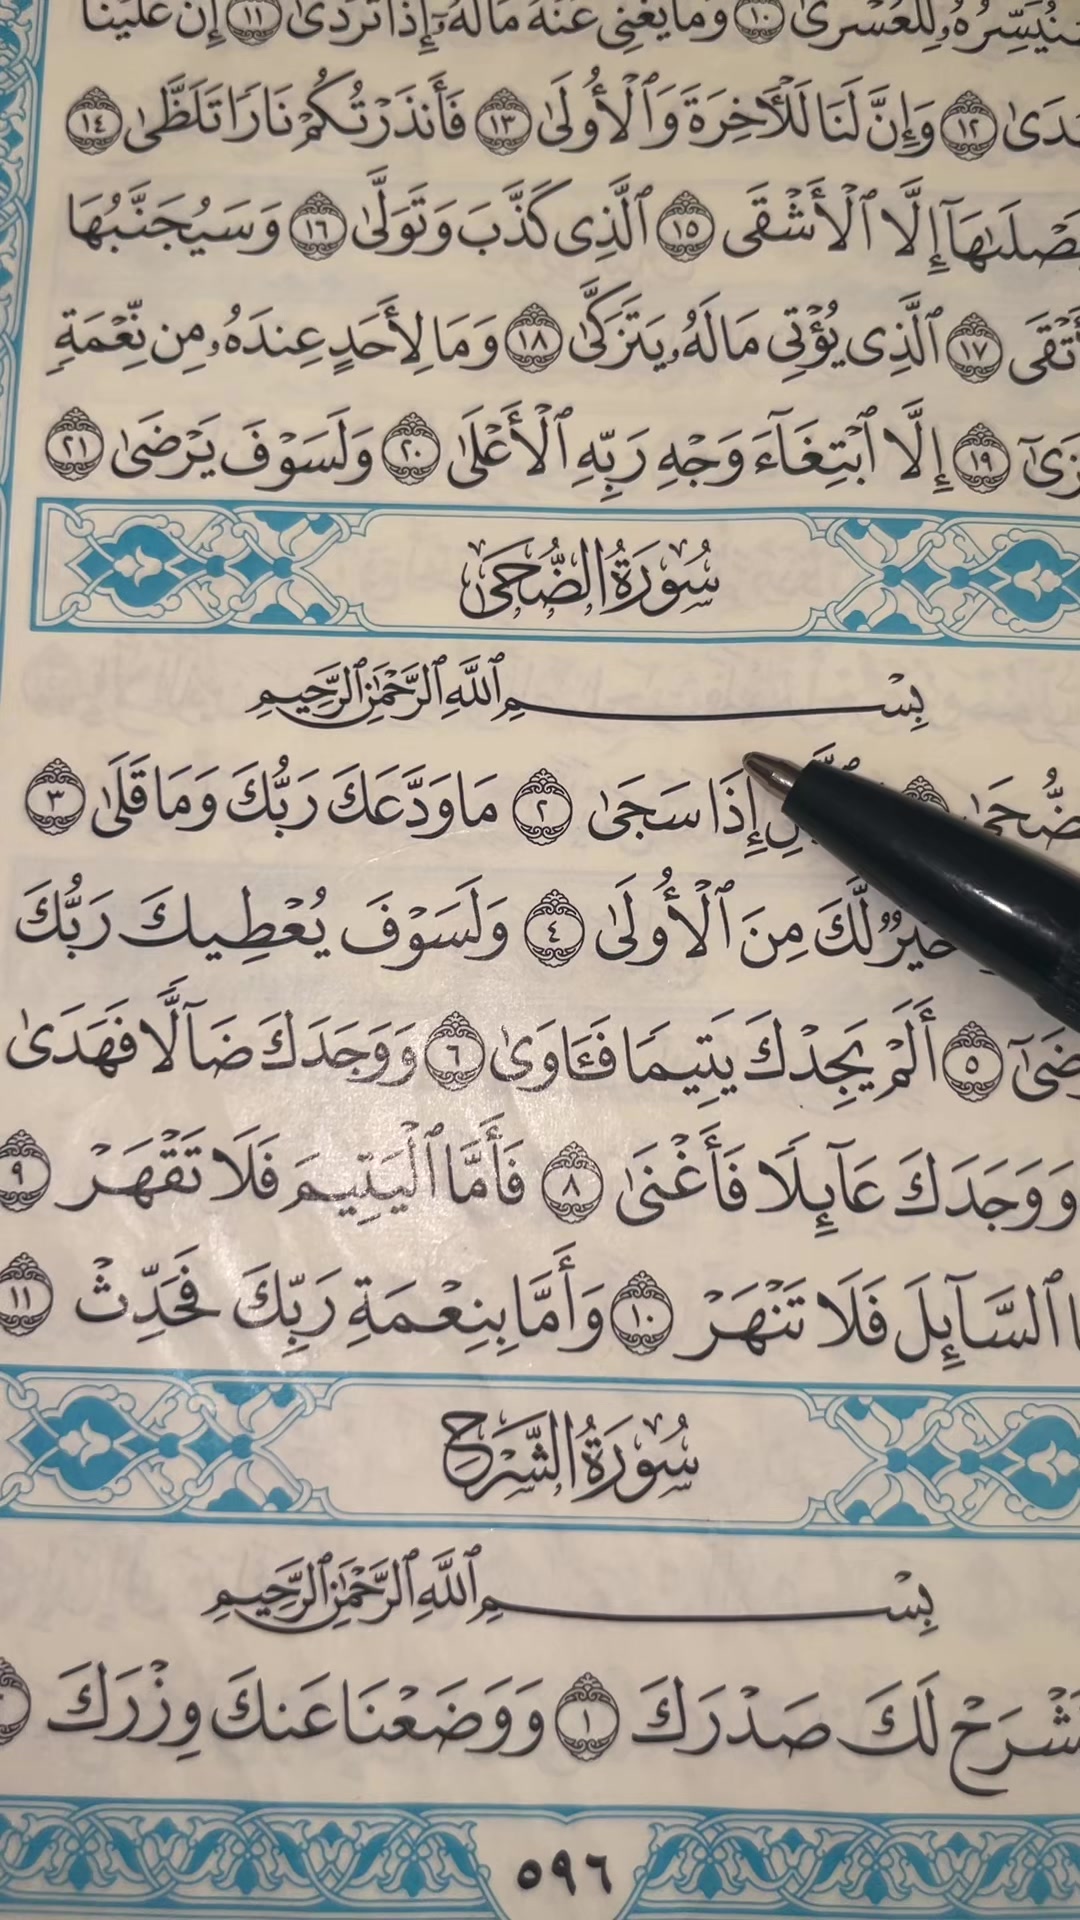 لِلْعُسْرَىٰ ١٠ وَمَا يُغْنِى عَنْهُ مَالُهُۥٓ إِذَا تَرَدَّىٰٓ ١١ إِنَّ عَلَيْنَا
١٢ وَإِنَّ لَنَا لَلْءَاخِرَةَ وَٱلْأُولَىٰ ١٣ فَأَنذَرْتُكُمْ نَارًا تَلَظَّىٰ ١٤
إِلَّا ٱلْأَشْقَى ١٥ ٱلَّذِى كَذَّبَ وَتَوَلَّىٰ ١٦ وَسَيُجَنَّبُهَا
١٧ ٱلَّذِى يُؤْتِى مَالَهُۥ يَتَزَكَّىٰ ١٨ وَمَا لِأَحَدٍ عِندَهُۥ مِن نِّعْمَةٍ
١٩ إِلَّا ٱبْتِغَآءَ وَجْهِ رَبِّهِ ٱلْأَعْلَىٰ ٢٠ وَلَسَوْفَ يَرْضَىٰ ٢١
سُورَةُ الضُّحَىٰ
بِسْمِ ٱللَّهِ ٱلرَّحْمَٰنِ ٱلرَّحِيمِ
إِذَا سَجَىٰ ٢ مَا وَدَّعَكَ رَبُّكَ وَمَا قَلَىٰ ٣
خَيْرٌ لَّكَ مِنَ ٱلْأُولَىٰ ٤ وَلَسَوْفَ يُعْطِيكَ رَبُّكَ
٥ أَلَمْ يَجِدْكَ يَتِيمًا فَـَٔاوَىٰ ٦ وَوَجَدَكَ ضَآلًّا فَهَدَىٰ
وَوَجَدَكَ عَآئِلًا فَأَغْنَىٰ ٨ فَأَمَّا ٱلْيَتِيمَ فَلَا تَقْهَرْ ٩
ٱلسَّآئِلَ فَلَا تَنْهَرْ ١٠ وَأَمَّا بِنِعْمَةِ رَبِّكَ فَحَدِّثْ ١١
سُورَةُ الشَّرْحِ
بِسْمِ ٱللَّهِ ٱلرَّحْمَٰنِ ٱلرَّحِيمِ
لَكَ صَدْرَكَ ١ وَوَضَعْنَا عَنكَ وِزْرَكَ
٥٩٦